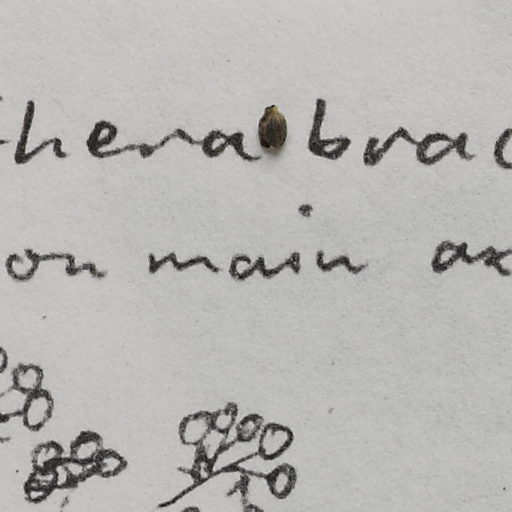 hera brac
on main ax